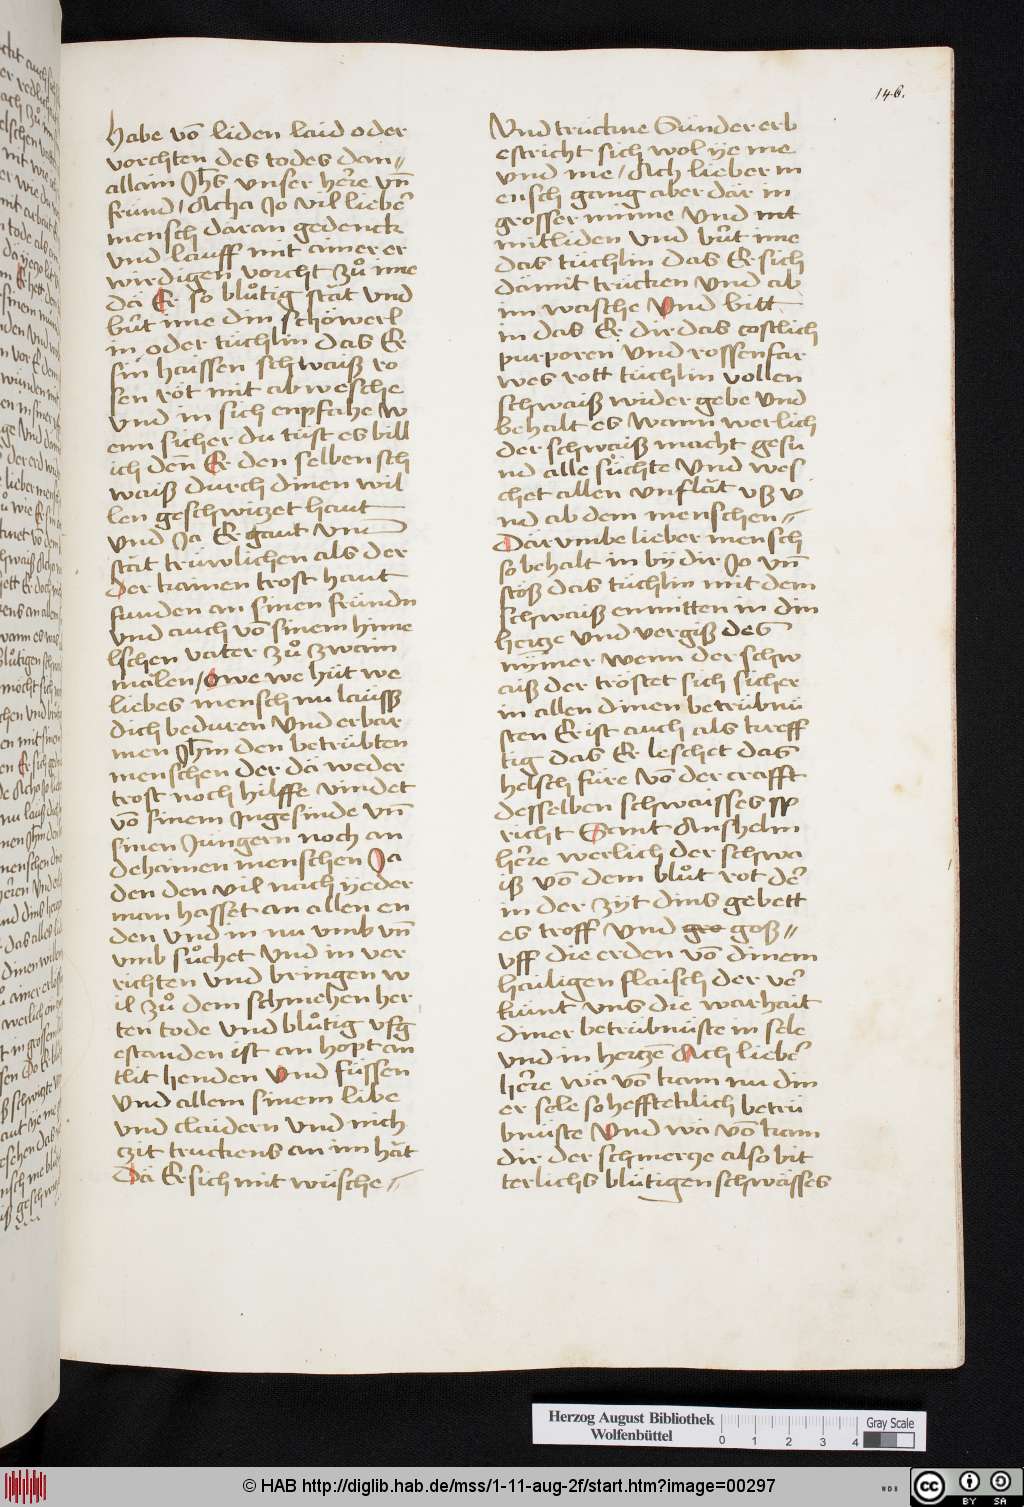 146.
habe vō liden laid oder
vorchten des todes dan⸗
allain Jhs vnser here vn̄
fründ / Acha Jo vil lieber
mensch daran gedenck
vnd lauff mit ainer er
wirdigen vorcht zů ime
dä Er so blůtig stät vnd
büt ime din schöwerl
in oder tüchlin das Er
sin haissen schwaiß ro
sen röt mit ab wesche
vnd in sich enpfahe w
enn sicher du tüst es bill
ich den̄ Er den selben sch
waiß durch dinen wil
len geschwitzet haut
vnd Ja Er gaut vnd
stät trüwlichen als der
der kainen trost haut
funden an sinen fründn
vnd auch vō sinem hime
lschen vater zů zwain
mälen / owe we hüt we
liebes mensch nu läuss
dich beduren vnd erbar
men Jhm den betrübten
menschen der dä weder
trost noch hilffe vindet
vō sinem Ingesinde vn̄
sinen Jüngern noch an
dehainen menschen Ja
den den vil nach yeder
man hasset an allen en
den vnd in nu vmb vn̄
vmb sůchet vnd in ver
richten vnd bringen w
il zů dem schmehen her
ten tode vnd blůtig vfg
estanden ist an hopt an
tlit henden vnd füssen
vnd allem sinem libe
vnd claidern vnd nich
zit truckens an im hät
Dä Er sich mit wüsche⸗
Vnd truckne Sünder erb
estricht sich wol ye me
vnd me / Ach lieber m
ensch gang aber där in
grosser minne vnd mt
mitliden vnd büt ime
das tüchlin das Er sich
dämit trücken vnd ab
im wasche vnd bitt
in das Er dir das costlich
purporen vnd rossenfar
wes rott tüchlin vollen
schwaiß wider gebe vnd
behalt es wann werlich
der schwaiß macht gesu
nd alle sůchte vnd wes
chet allen vnflät vß v
nd ab dem menschen⸗
Där vmbe lieber mensch
so behalt in by dir Jo vn̄
stöß das tüchlin mit dem
schwaiß enmitten in din
hertze vnd vergiß des
nymer wenn der schw
aiß der tröstet sich sicher
in allen dinen betrübnü
sten Er ist auch als kreff
tig das Er leschet das
helsch füre vō der crafft
desselben schwaisses sp
richt Sant Anshelm
here werlich der schwa
iß vō dem blůt rot der
in der zyt dins gebett
es troff vnd gro goß⸗
vff die erden vō dinem
hailigen flaisch der ver
künt vns die warhait
diner betrübnüste in sele
vnd in hertzē Ach lieber
here wä vō kam nu din
er sele so hefftecklich betrü
bnüste vnd wä vō kam
dir der schmerze also bit
terlichs blütigen schwässes
Herzog August Bibliothek
Wolfenbüttel
0 1 2 3 4
Gray Scale
© HAB http://diglib.hab.de/mss/1-11-aug-2f/start.htm?image=00297
WDB
cc BY SA